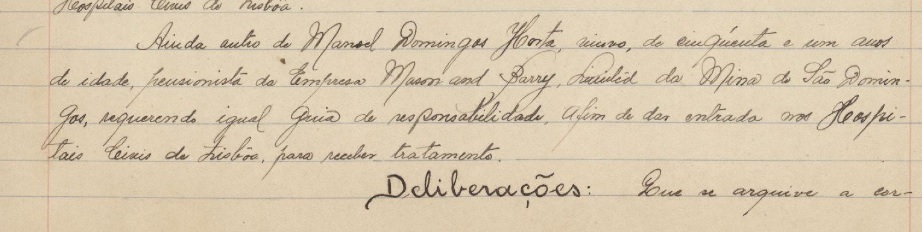 Hospitais Civis de Lisbôa.
Ainda outro de Manoel Domingos Horta, viuvo, de cinqüenta e um anos
de idade, pensionista da Empresa Mason and Barry, Limited da Mina de São Domin-
gos, requerendo igual Guia de responsabilidade, afim de dar entrada nos Hospi-
tais Civis de Lisbôa, para receber tratamento.
Deliberações: Que se arquive a cor-